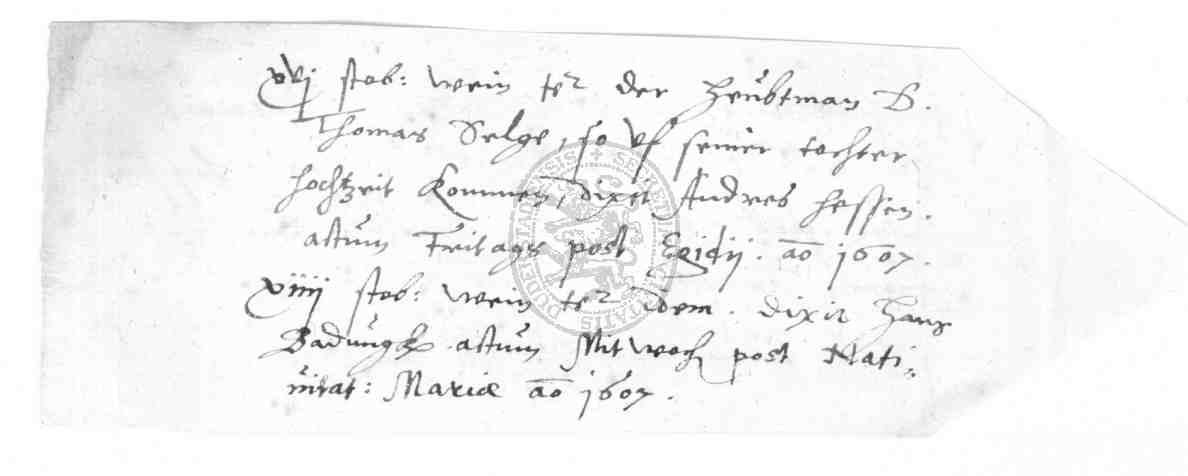 xvj stob: wein ter der Heubtman B.
Thomas Selge, so vf seiner tochter
hochtzeit kommen, dixit Andres Hessen.
actum Freitags post Egidij. ao 1607.
xiiij stob: wein ter idem. dixit Hans
Badungk actum Mitwoch post Nati=
uitat: Mariæ ao 1607.